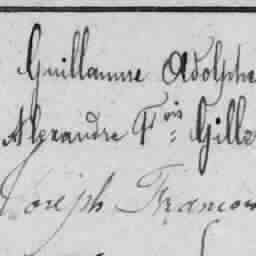 Guillaume Adolphe
Alexandre F.ois Gille
Joseph Francois